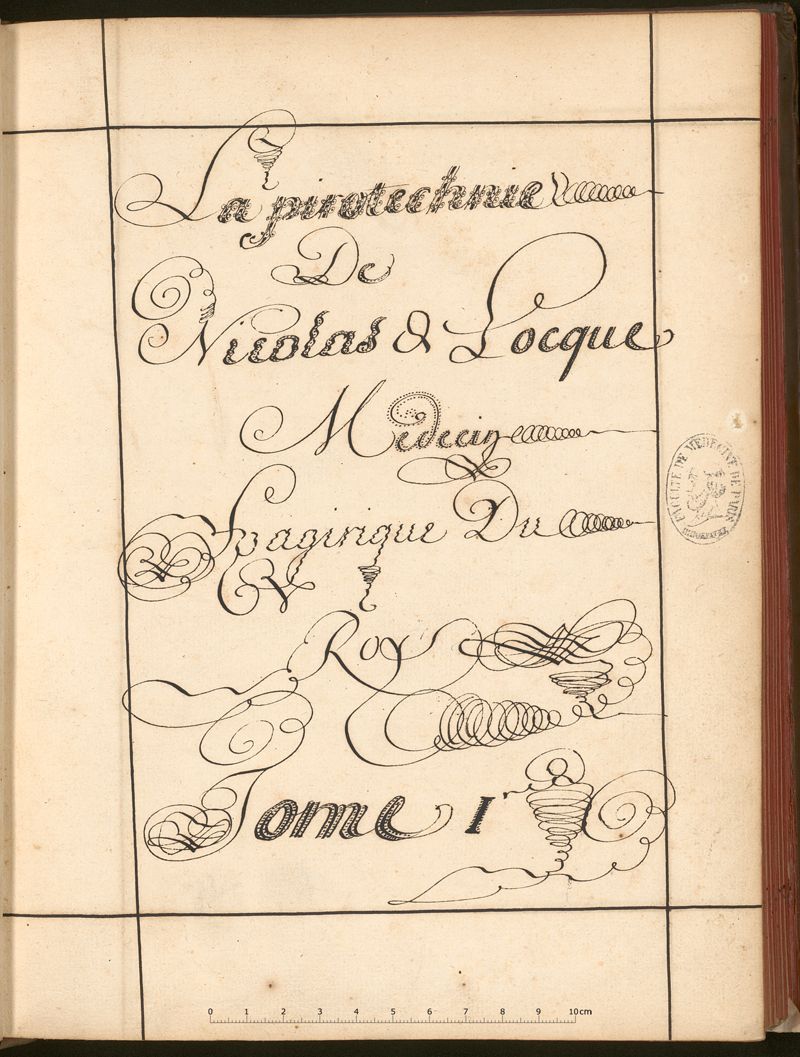 La pirotechnie
De
Nicolas & Locque
Medecin
Spagirique Du
Roy
Tome Ier
FACULTÉ DE MEDECINE DE PARIS
0 1 2 3 4 5 6 7 8 9 10cm